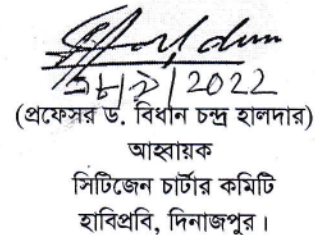 2022
(প্রফেসর ড. বিধান চন্দ্র হালদার)
আহ্বায়ক
সিটিজেন চার্টার কমিটি
হাবিপ্রবি, দিনাজপুর।